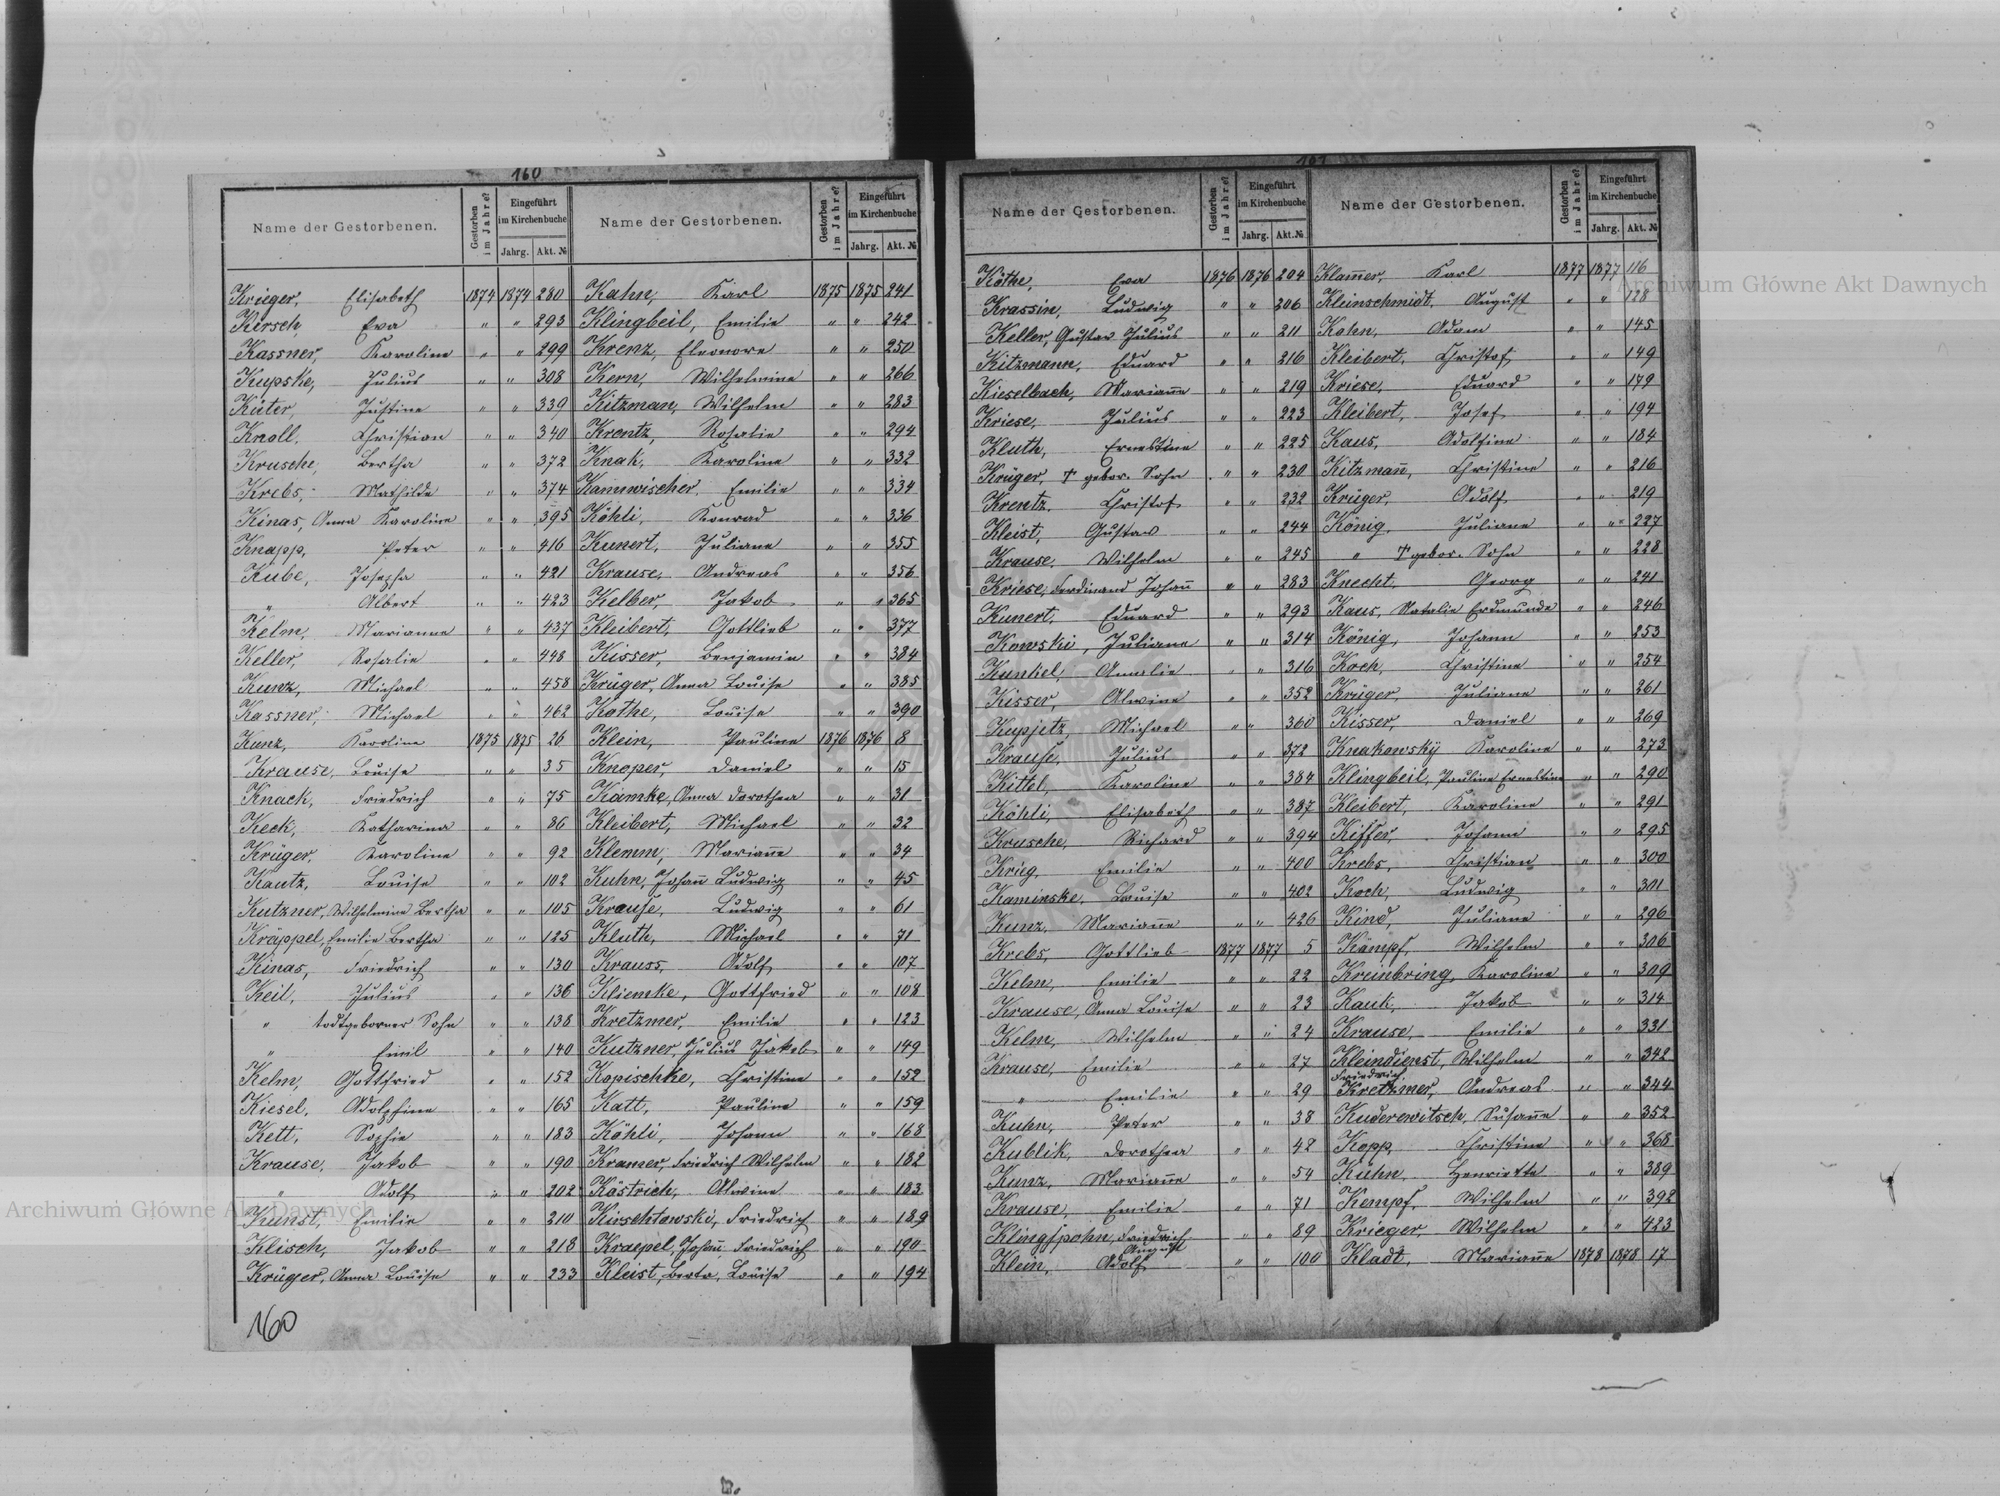 160
Name der Gestorbenen. Gestorben im Jahre? Eingeführt im Kirchenbuche Jahrg. Akt. №
Krieger, Elisabeth 1874 1874 280
Kirsch, Eva " " 293
Kassner, Karoline " " 299
Kupske, Julius " " 308
Küter, Justine " " 339
Knoll, Christian " " 340
Krusche, Bertha " " 372
Krebs, Mathilde " " 374
Kinas, Anna Karoline " " 395
Knapp, Peter " " 416
Kube, Josepha " " 421
" Albert " " 423
Kelm, Marianne " " 437
Keller, Rosalie " " 448
Kunz, Michael " " 458
Kassner, Michael " " 462
Kunz, Karoline 1875 1875 26
Krause, Louise " " 35
Knack, Friedrich " " 75
Keck, Katharina " " 86
Krüger, Karoline " " 92
Kautz, Louise " " 102
Kutzner, Wilhelmine Bertha " " 105
Kräppel, Emilie Bertha " " 125
Kinas, Friedrich " " 130
Keil, Julius " " 136
" todtgeborner Sohn " " 138
" Emil " " 140
Kelm, Gottfried " " 152
Kiesel, Adolphine " " 165
Kett, Sophie " " 183
Krause, Jakob " " 190
" Adolf " " 202
Kunst, Emilie " " 210
Klisch, Jakob " " 218
Krüger, Anna Louise " " 233
160
Name der Gestorbenen. Gestorben im Jahre? Eingeführt im Kirchenbuche Jahrg. Akt. №
Kahn, Karl 1875 1875 241
Klingbeil, Emilie " " 242
Krenz, Eleonore " " 250
Kern, Wilhelmine " " 266
Kitzman, Wilhelm " " 283
Krentz, Rosalie " " 294
Knak, Karoline " " 332
Kannwischer, Emilie " " 334
Köhli, Konrad " " 336
Kunert, Juliane " " 355
Krause, Andreas " " 356
Kelber, Jakob " " 365
Kleibert, Gottlieb " " 377
Kisser, Benjamin " " 384
Krüger, Anna Louise " " 385
Kothe, Louise " " 390
Klein, Pauline 1876 1876 8
Knoper, Daniel " " 15
Kämke, Anna Dorothea " " 31
Kleibert, Michael " " 32
Klemm, Mariane " " 34
Kuhn, Johan Ludwig " " 45
Krause, Ludwig " " 61
Kluth, Michael " " 71
Krauss, Adolf " " 107
Kliemke, Gottfried " " 108
Kretzmer, Emilie " " 123
Kutzner, Julius Jakob " " 149
Kopischke, Christine " " 152
Katt, Pauline " " 159
Köhli, Johann " " 168
Kramer, Friedrich Wilhelm " " 182
Kästrich, Alwine " " 183
Kirschtowski, Friedrich " " 189
Kraepel, Johan Friedrich " " 190
Kleist, Berta, Louise " " 194
Name der Gestorbenen. Gestorben im Jahre? Eingeführt im Kirchenbuche Jahrg. Akt. №
Köthe, Ewa 1876 1876 204
Krassin, Ludwig " " 206
Keller, Gustav Julius " " 211
Kitzmann, Eduard " " 216
Kieselbach, Mariane " " 219
Kriese, Julius " " 223
Kluth, Ernestine " " 225
Krüger, † gebor. Sohn " " 230
Krentz, Christof " " 232
Kleist, Gustav " " 244
Krause, Wilhelm " " 245
Kriese, Ferdinand Johan " " 283
Kunert, Eduard " " 293
Kowski, Juliane " " 314
Kunkel, Amalie " " 316
Kisser, Alwine " " 352
Kupjetz, Michael " " 360
Krause, Julius " " 372
Kittel, Karoline " " 384
Köhli, Elisabeth " " 387
Krusche, Richard " " 394
Krüg, Emilie " " 400
Kaminske, Louise " " 402
Kunz, Mariane " " 426
Krebs, Gottlieb 1877 1877 5
Kelm, Emilie " " 22
Krause, Anna Louise " " 23
Kelm, Wilhelm " " 24
Krause, Emilie " " 27
" Emilie " " 29
Kuhn, Peter " " 38
Kublik, Dorothea " " 42
Kunz, Mariane " " 54
Krause, Emilie " " 71
Klingspohn, Friedrich August " " 89
Klein, Adolf " " 100
Name der Gestorbenen. Gestorben im Jahre? Eingeführt im Kirchenbuche Jahrg. Akt. №
Klamer, Karl 1877 1877 116
Kleinschmidt, August " " 128
Kahn, Adam " " 145
Kleibert, Christof " " 149
Kriese, Eduard " " 179
Kleibert, Josef " " 194
Kaus, Adolfine " " 184
Kitzman, Christine " " 216
Krüger, Adolf " " 219
König, Juliane " " 227
" † gebor. Sohn " " 228
Knecht, Georg " " 241
Kaus, Natalie Erdmunde " " 246
König, Johann " " 253
Koch, Christine " " 254
Krüger, Juliane " " 261
Kisser, Daniel " " 269
Knakowsky Karoline " " 273
Klingbeil, Pauline Ernestine " " 290
Kleibert, Karoline " " 291
Kisser, Johann " " 295
Krebs, Christian " " 300
Koch, Ludwig " " 301
Kind, Juliane " " 296
Kämpf, Wilhelm " " 306
Kreinbring, Karoline " " 309
Kauk, Jakob " " 314
Krause, Emilie " " 331
Kleindienst, Wilhelm Friedrich " " 342
Kretzmer, Andreas " " 344
Kuderewitsch, Susane " " 352
Kopp, Christine " " 368
Kühn, Henriette " " 389
Kempf, Wilhelm " " 392
Krieger, Wilhelm " " 423
Kladt, Mariane 1878 1878 17
Archiwum Główne Akt Dawnych
Archiwum Główne Akt Dawnych